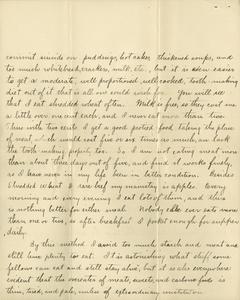 commit suicide on puddings, hot cakes, thickened soups, and
too much white bread, crackers, milk, etc., but it is even easier
to get a moderate, well proportioned, well cooked, tooth making
diet out of it that is all one could wish for. You will all
that I eat shredded wheat often. With it goes, so they cost me
a little over one cent each, and I never eat more than two.
Thus with two cents I get a good portion food taking the place
of meat which would cost five or six times as much, and lack
the tooth making property too. So I am not eating meat more
than about three days out of five, and find it works finely,
as I have never in my life been in better condition. Besides
shredded wheat I have beef my mainstay is apples. Every
morning and every evening I eat lots of them, and there
is nothing better for either meal. Nobody else ever eats more
than one or two, so after breakfast I pocket enough for supper
daily.
By this method I avoid too much starch and meat and
still have plenty to eat. It is astonishing what stuff some
fellows can eat and still stay alive, but it is also everywhere
evident that the overeater of meats, sweets, and carbons foods is
thin, tired, and pale, unless of extraordinary constitution.